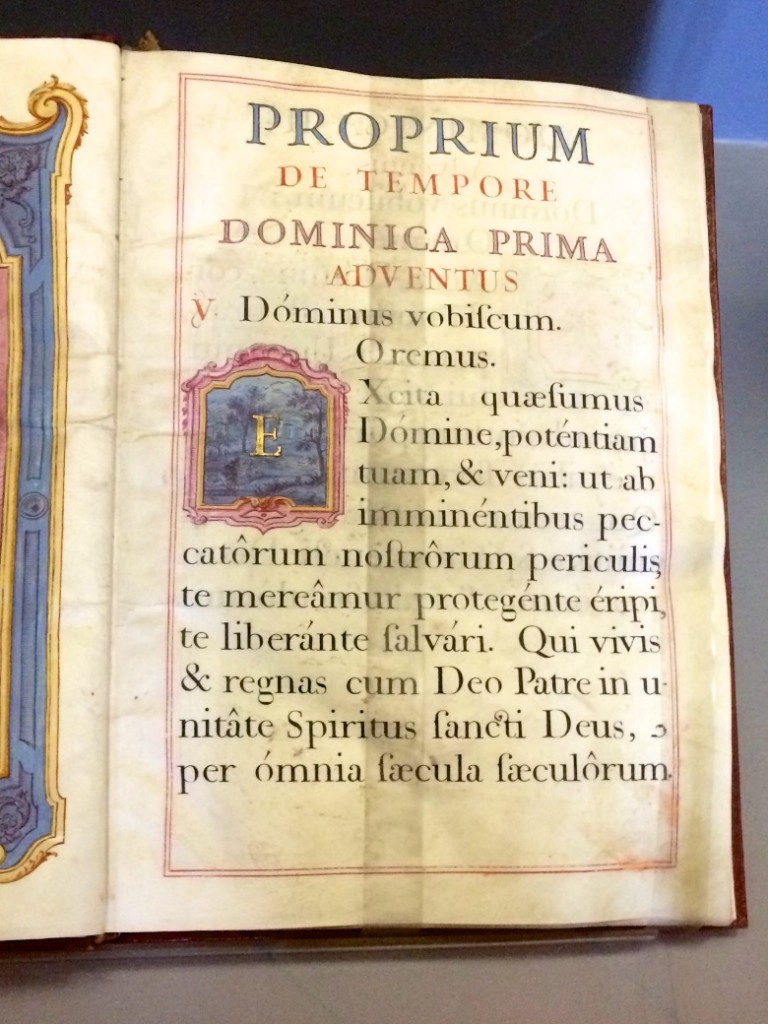 PROPRIUM
DE TEMPORE
DOMINICA PRIMA
ADVENTUS
℣. Dóminus vobiſcum.
Oremus.
EXcita quæſumus
Dómine, poténtiam
tuam, & veni: ut ab
imminéntibus pec-
catôrum noſtrôrum periculis,
te mereâmur protegénte éripi,
te liberánte ſalvári. Qui vivis
& regnas cum Deo Patre in u-
nitâte Spiritus ſancti Deus,
per ómnia ſæcula ſæculôrum.